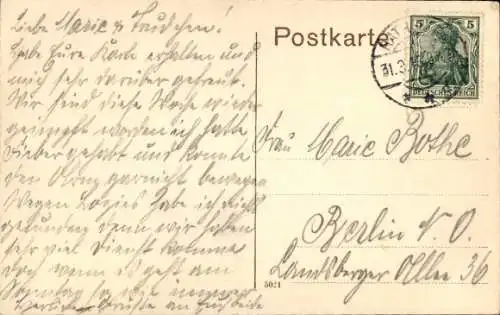 Liebe Marie & Trudchen!
habe Eure Karte erhalten und
mich sehr darüber gefreut.
Wir sind diese Woche wieder
geimpft worden ich hatte
Fieber gehabt und konnte
den Arm garnicht bewegen
Wegen habe ich nicht
denn wir haben
sehr viel Dienst komme
doch wenn es geht am
Sonntag so wie immer
Herzliche Grüsse an Euch beide
Postkarte
31.3.
5 5
DEUTSCHES REICH
Frau Marie Bothe
Berlin N.O.
Landsberger Allee 36
5021